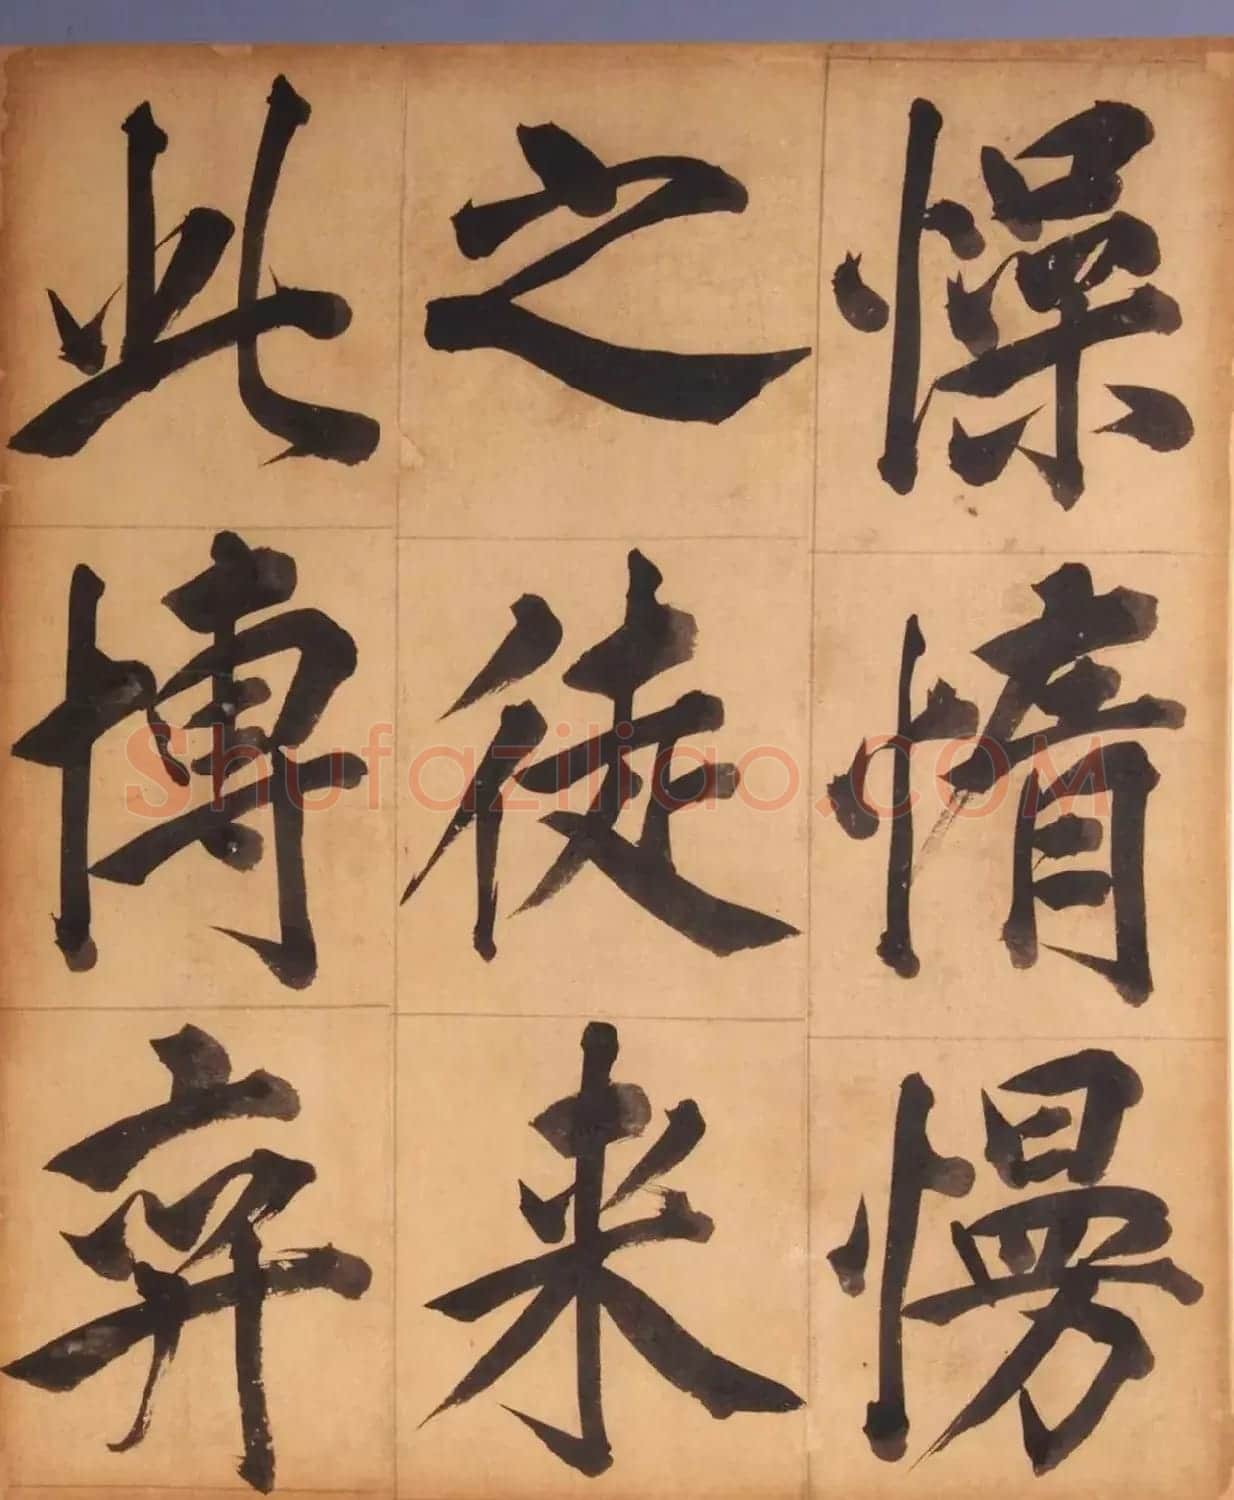 懆惰慢
之徒来
此博弈
Shufaziliao.COM